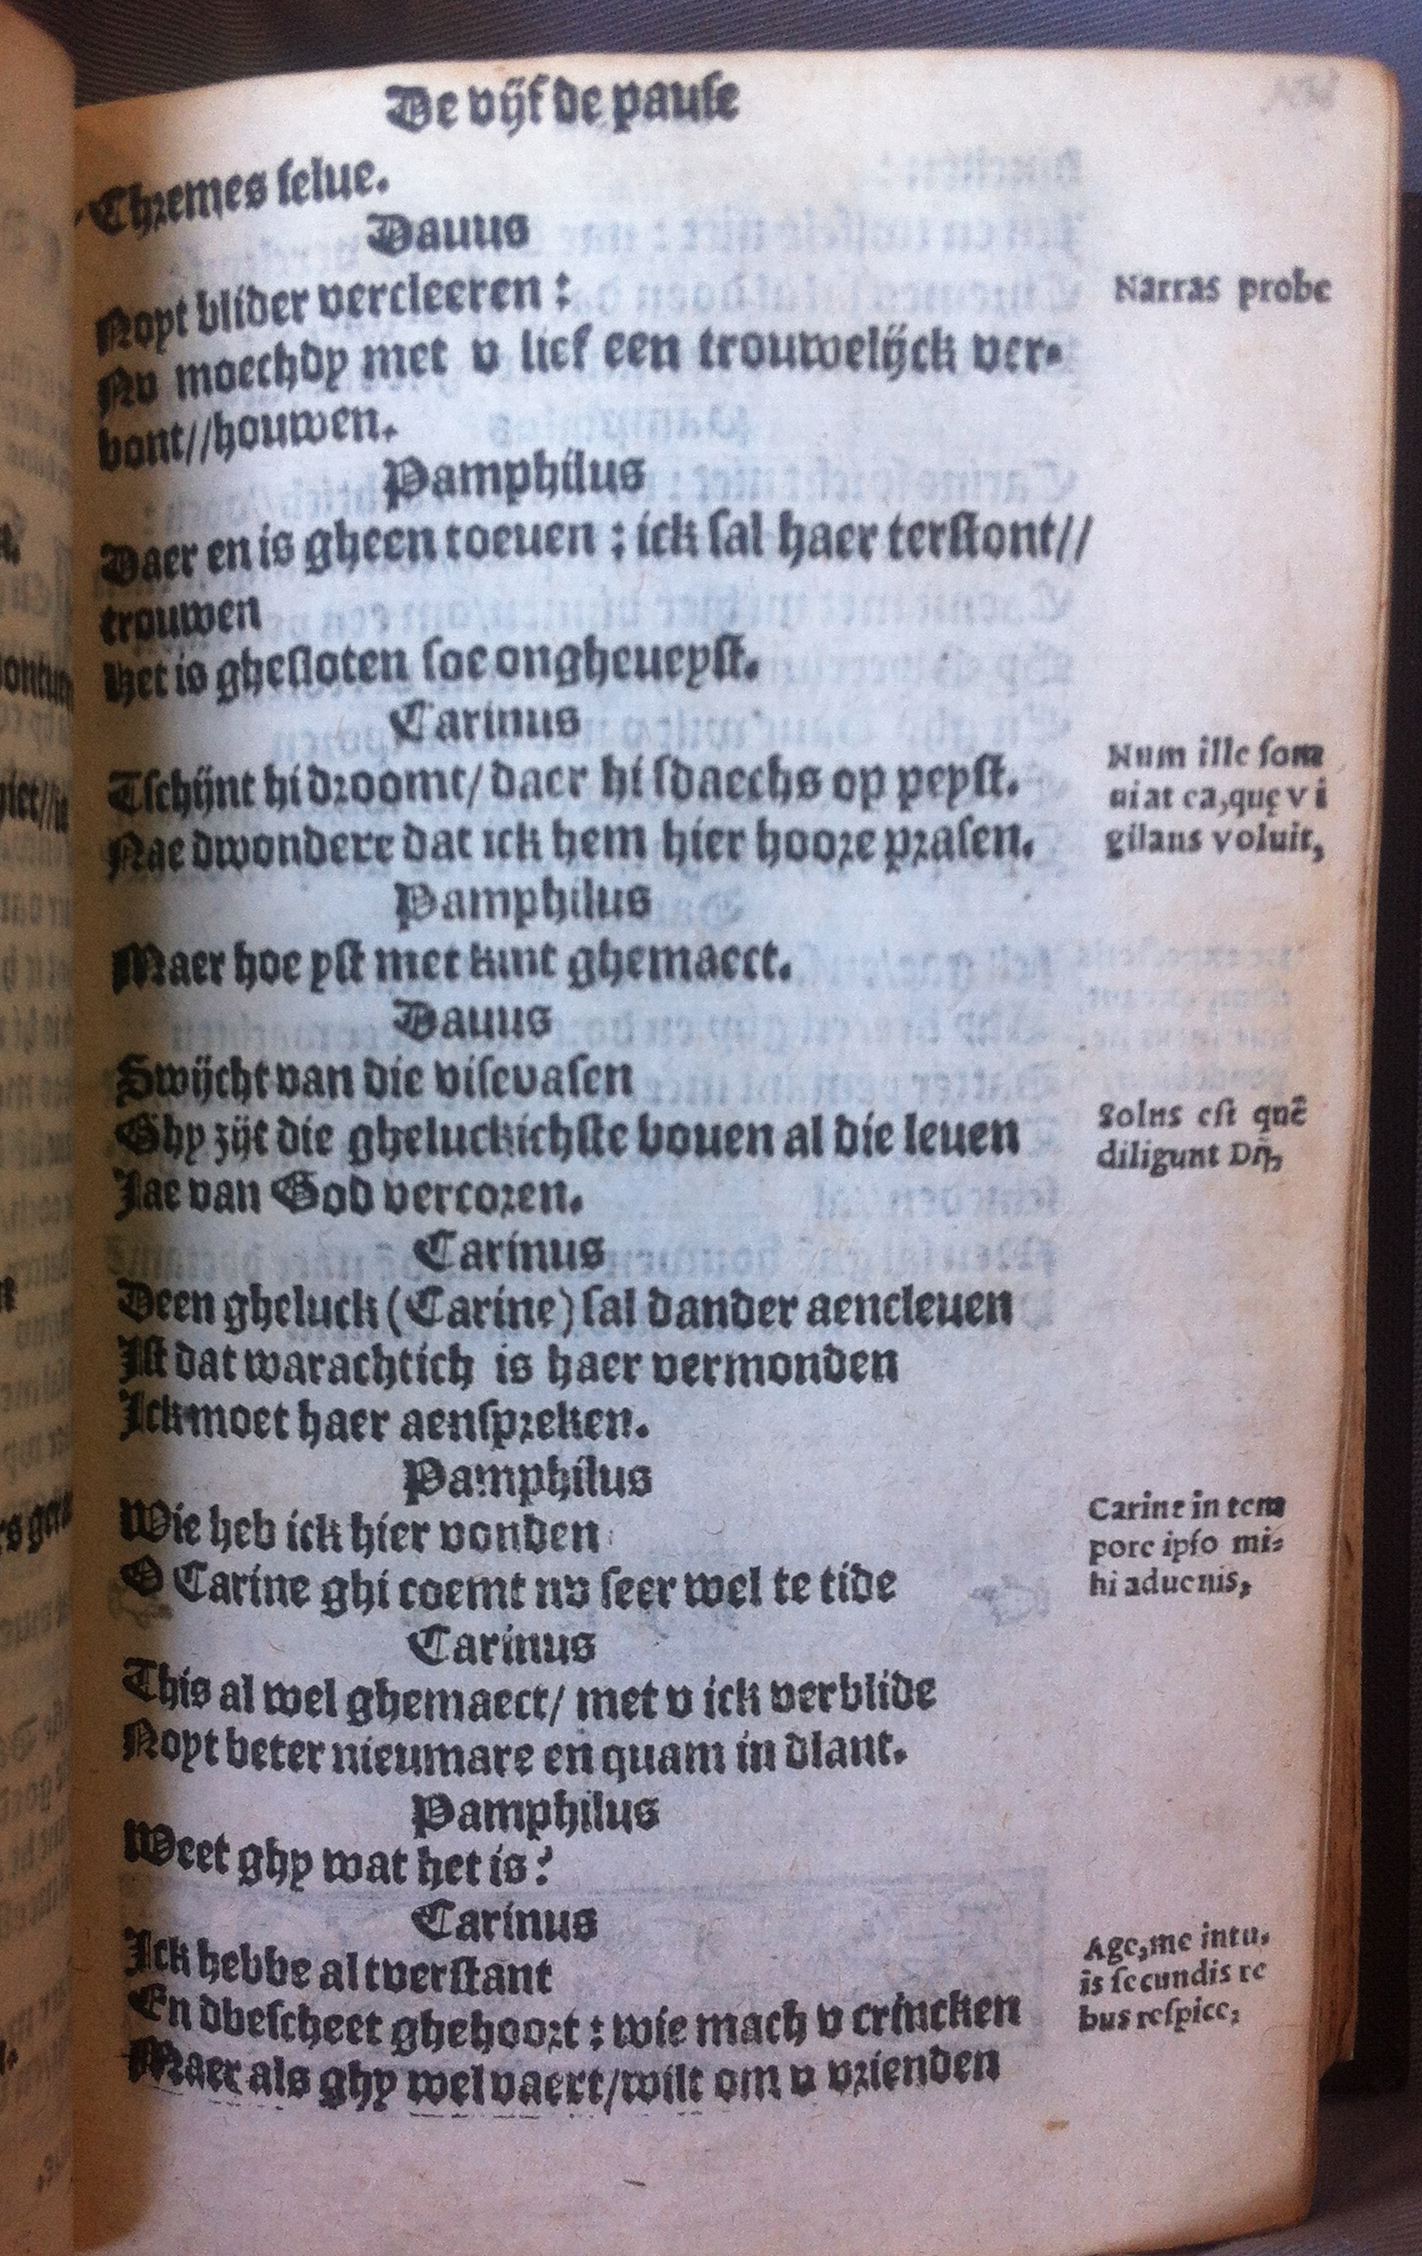 De vijfde pause
Chremes selue.
Dauus
Noyt blider vercleeren:
Narras probe
Nv moechdy met v lief een trouwelijck ver-
bont//houwen.
Pamphilus
Daer en is gheen toeuen: ick sal haer terstont//
trouwen
Het is ghesloten soe ongheueynst.
Carinus
Tschijnt hi droomt/ daer hi sdaechs op peyst.
Nae dwondere dat ick hem hier hoore prasen.
Num ille som
niat ea,quę vi
gilans voluit,
Pamphilus
Maer hoe yst met kint ghemaect.
Dauus
Swijcht van die visevasen
Ghy zijt die gheluckichste bouen al die leuen
Jae van God vercoren.
Solus est quē
diligunt Dij,
Carinus
Deen gheluck (Carine) sal dander aencleuen
Ist dat warachtich is haer vermonden
Ick moet haer aenspreken.
Pamphilus
Wie heb ick hier vonden
O Carine ghi coemt nv seer wel te tide
Carine in tem
pore ipso mi-
hi aduenis,
Carinus
This al wel ghemaect/ met v ick verblide
Noyt beter nieumare en quam in dlant.
Pamphilus
Weet ghy wat het is?
Carinus
Ick hebbe al tverstant
En dbescheet ghehoort: wie mach v crincken
Maer als ghy wel vaert/wilt om v vrienden
Age,me intu-
is secundis re
bus respice,